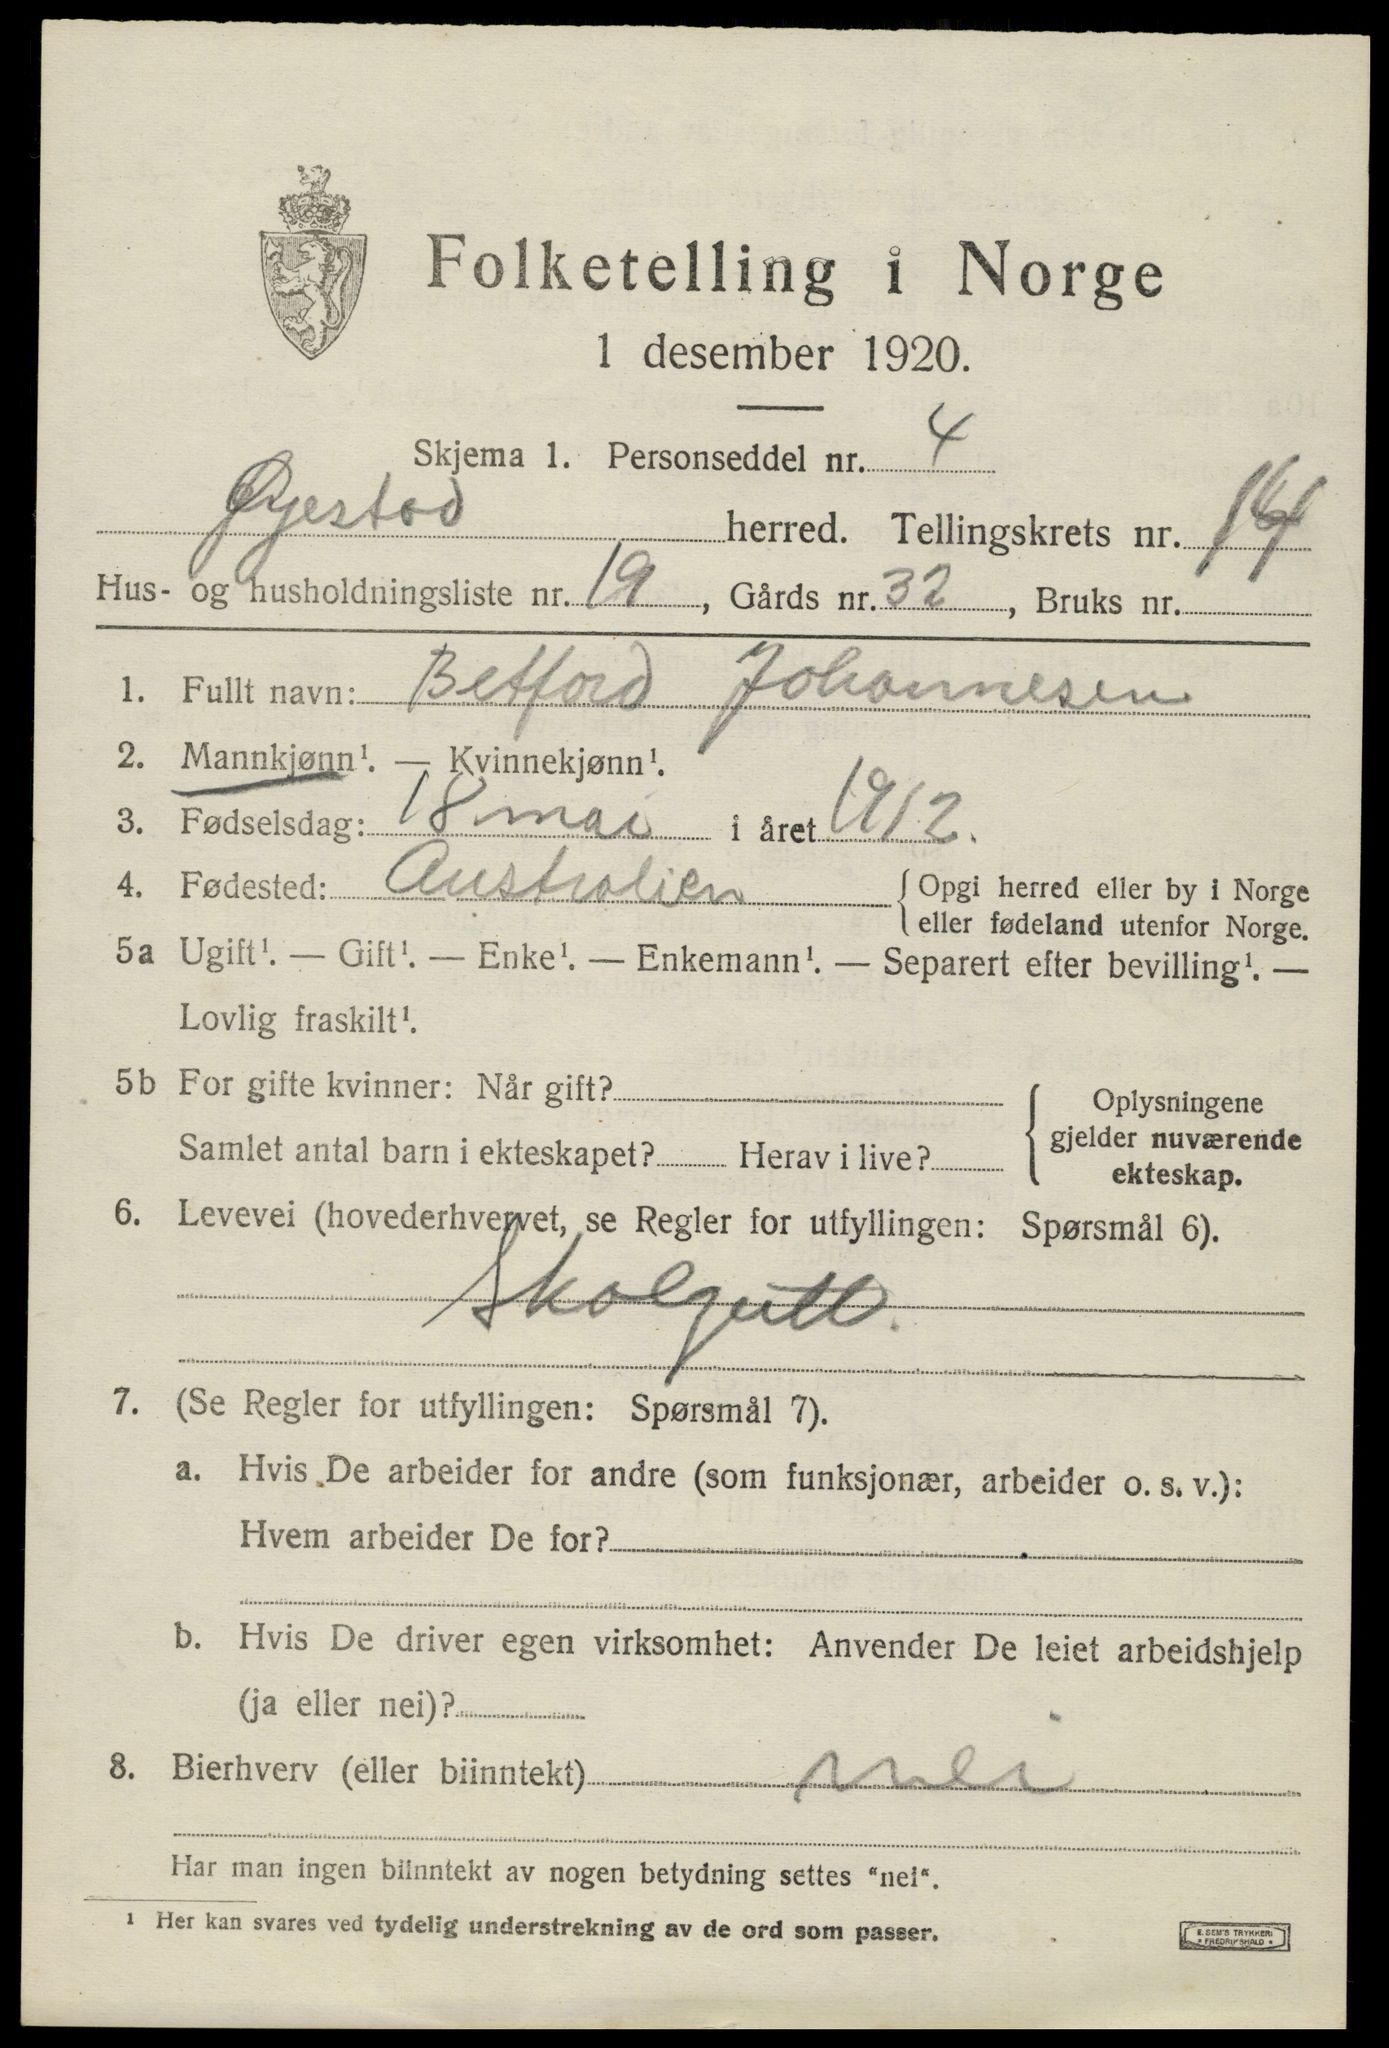 Folketelling i Norge
1 desember 1920.
Skjema 1. Personseddel nr. 4
Øyestad herred. Tellingskrets nr. 14
Hus- og husholdningsliste nr. 19, Gårds nr. 32, Bruks nr.
1. Fullt navn: Betford Johannesen
2. Mannkjønn¹. — Kvinnekjønn¹.
3. Fødselsdag: 18 mai i året 1912.
4. Fødested: Australien {Opgi herred eller by i Norge
eller fødeland utenfor Norge.
5a Ugift¹. — Gift¹. — Enke¹. — Enkemann¹. — Separert efter bevilling¹. —
Lovlig fraskilt¹.
5b For gifte kvinner: Når gift?
Samlet antal barn i ekteskapet? Herav i live?
Oplysningene
gjelder nuværende
ekteskap.
6. Levevei (hovederhvervet, se Regler for utfyllingen: Spørsmål 6).
Skolgutt.
7. (Se Regler for utfyllingen: Spørsmål 7).
a. Hvis De arbeider for andre (som funksjonær, arbeider o. s. v.):
Hvem arbeider De for?
b. Hvis De driver egen virksomhet: Anvender De leiet arbeidshjelp
(ja eller nei)?
8. Bierhverv (eller biinntekt) nei
Har man ingen biinntekt av nogen betydning settes "nei".
¹ Her kan svares ved tydelig understrekning av de ord som passer.
E. SEM'S TRYKKERI
* FREDRIKSHALD *